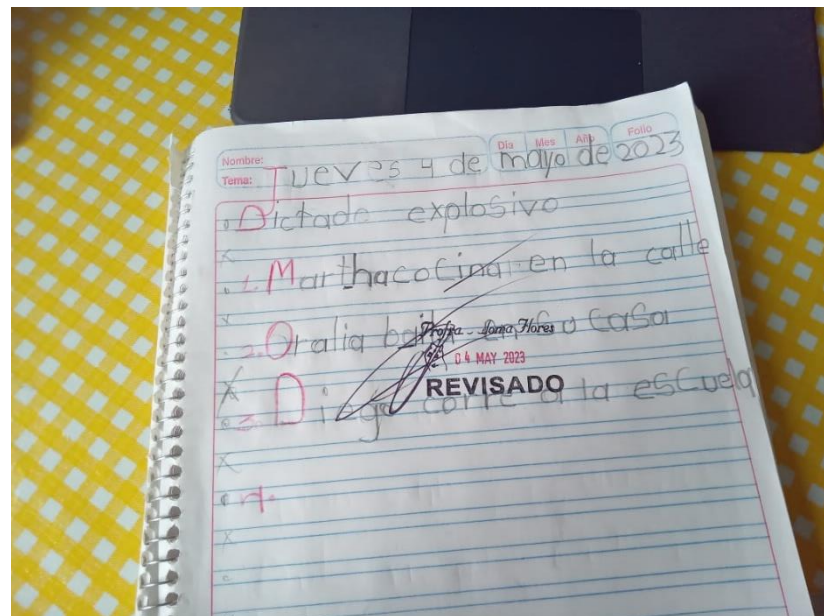 Nombre: Día Mes Año Folio
Tema: Jueves 4 de mayo de 2023
Dictado explosivo
1. Marthacocina en la calle
2. Oralia baila en su casa
Profra. Flores
04 MAY 2023
REVISADO
3. Diego corre a la escuela
4.